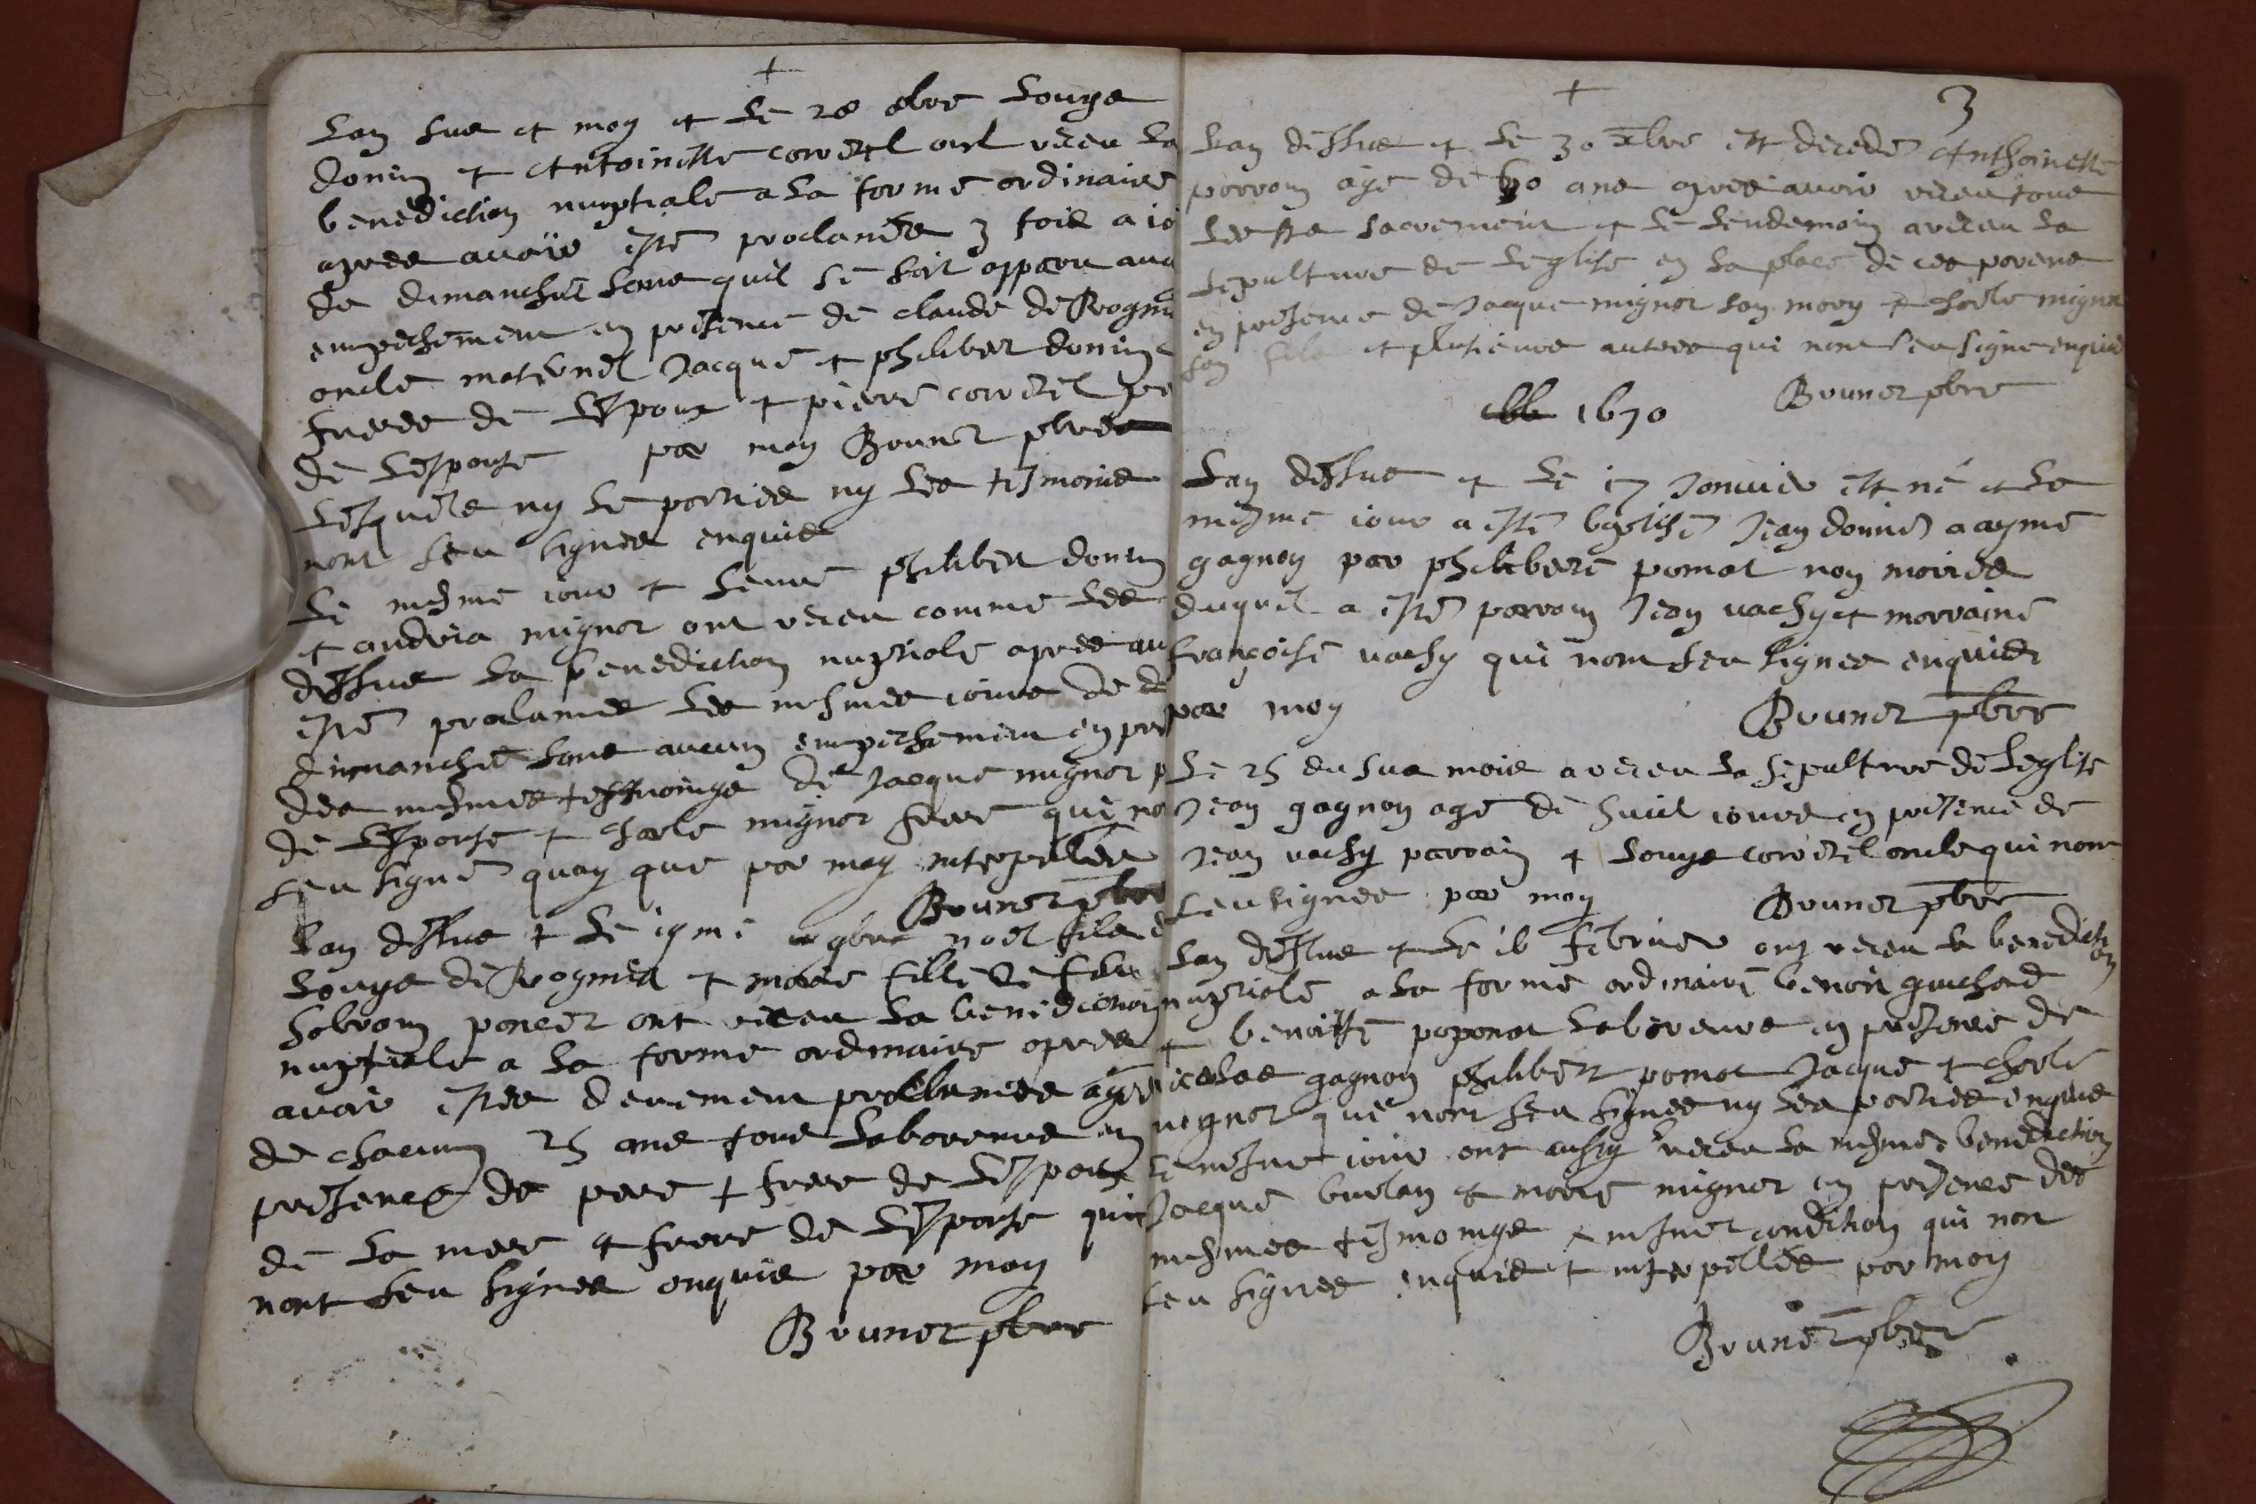 +
Lan sus et moy et le 28 8bre Louys
donin et Antoinette corretel ont receu la
benediction nuptiale a la forme ordinaire
apres avoir esté proclamés 3 fois a io
de dimanche sans quil se soit apparu auc
empechement en presence de claude de Rogni
oncle maternel Jacque et philibert donin
freres de Lespoux et pierre corretel pe
de Lespouse par moy Brunet pbre
Lesquels ny le parties ny les tesmoins
nont seu signer enquis
Le mesme iour et heure philibert donin
et andrea mignot ont receu comme les
dessus la benediction nuptiale apres av
esté proclamés les mesmes iours de d
dimanche sans aucun empechement en pre
des mesmes tesmoings de Jacque mignot p
de Lespouse et charle mignot frere qui no
seu signé quoy que par moy interpellés
Brunet pbre
Lan dessus et le 19me 9bre noel fils d
Louys de Rognia et marie fille de feu
poncet ont receu la benediction
nuptiale a la forme ordinaire apres
avoir estés deuement proclamés agés
de chacun 25 ans tous laboureurs en
presence de pere et frere de Lespoux
de la mere et frere de Lespouse qui
nont seu signer enquis par moy
Brunet pbre
+
3
Lan dessus et le 30 xbre est decedé Anthoinette
parrom agé de 60 ans apres avoir receu tous
les sts sacrement et le lendemain a receu la
sepulture de leglise en la place de ces parens
en presence de Jacque mignot son mary et charle mignot
son fils et plusieurs autres qui nont seu signé enquis
Brunet pbre
1670
Lan dessus et le 17 Janvier est né et le
mesme iour a esté baptisé Jean donné a aymé
gagnon par philiberte pomat non mariés
duquel a esté parrain Jean vachy et marraine
françoise vachy qui nont seu signer enquis
par moy
Brunet pbre
Le 25 du sus mois a receu la sepulture de leglise
Jean gagnon agé de huict iours en presence de
Jean vachy parrain et Louys corretel oncle qui nont
seu signer par moy Brunet pbre
Lan dessus et le 16 febvrier ont receu la benediction
nuptiale a la forme ordinaire benoit guichard
et benoitte poponat laboureurs en presence de
icolas gagnon philibert pomat Jacque et charle
mignot qui nont seu signer ny les parties enquis
Le mesme iour ont aussy receu la mesme benediction
Jacque burlan et marie mignot en presence des
mesmes tesmoings et mesme condition qui nont
seu signer enquis et interpellés par moy
Brunet pbre